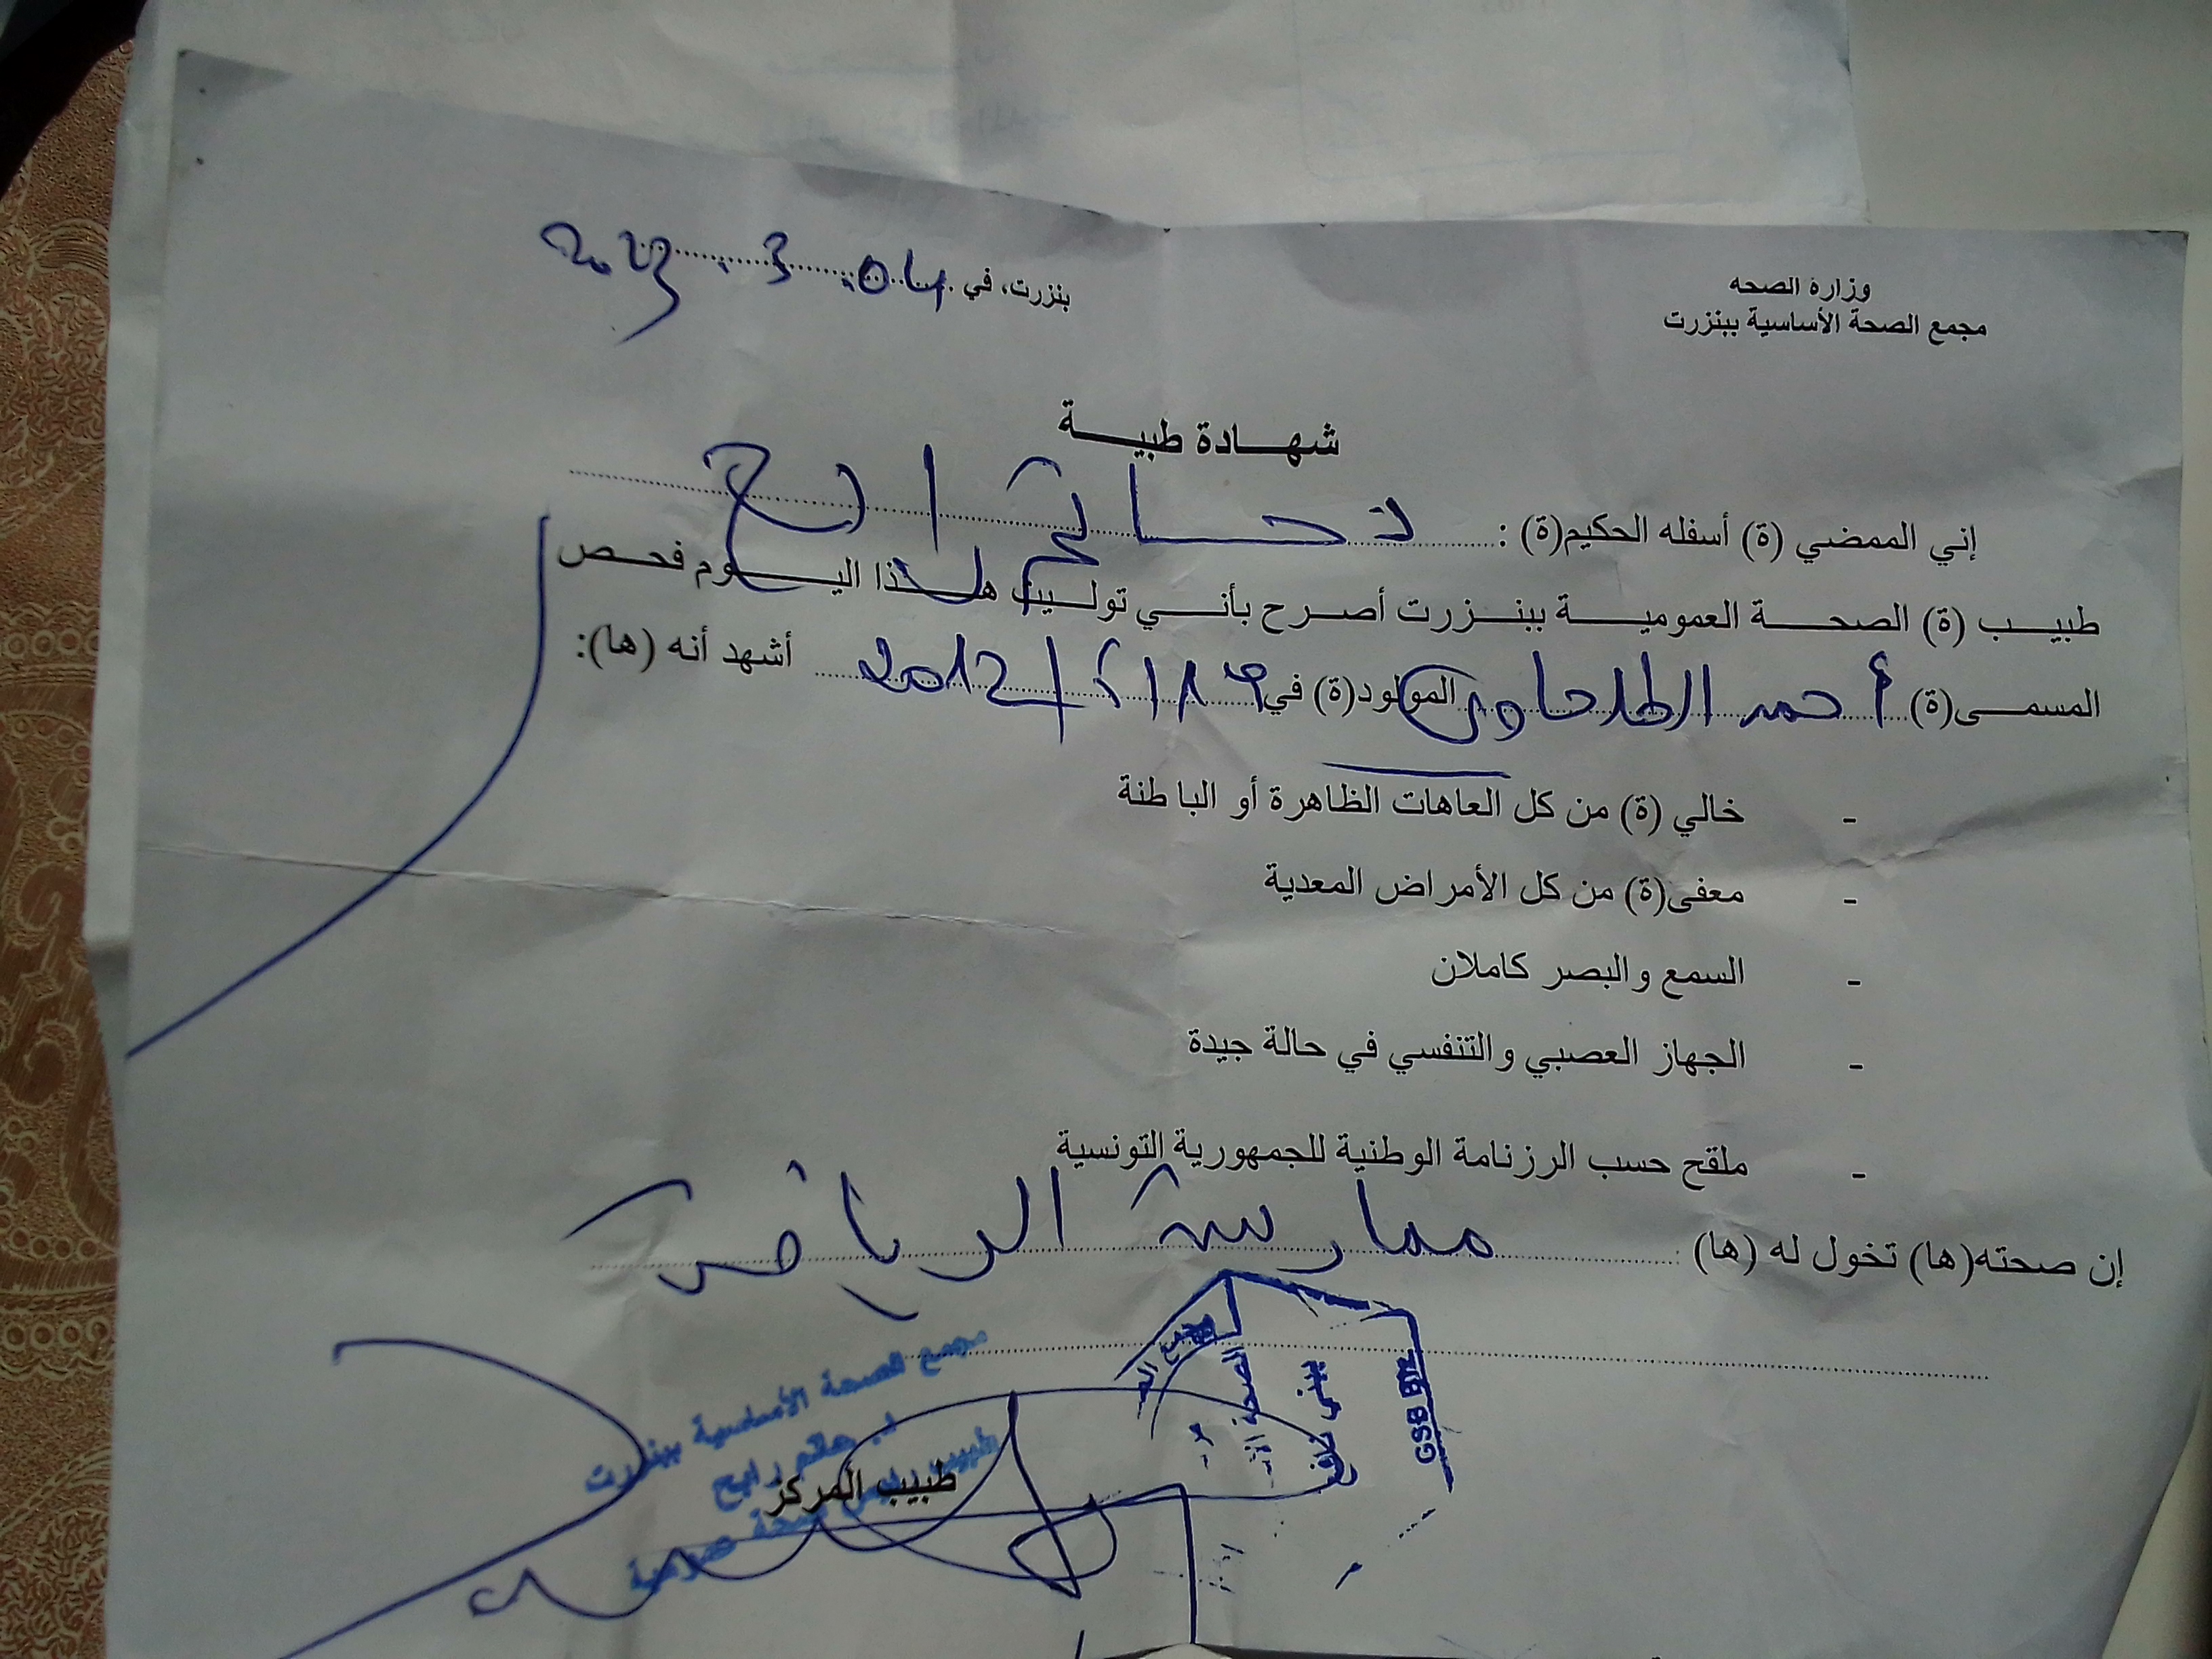 وزارة الصحه
مجمع الصحة الأساسية ببنزرت
بنزرت، في 04. 3. 2023
شهـــادة طبيـــة
إني الممضي (ة) أسفله الحكيم(ة) : د حاتم رابح
طبيــب (ة) الصحـــة العموميـــة ببنـــزرت أصــرح بأنـــي توليـــت هـــذا اليـــوم فحــص
المسمــى(ة) أحمد الطلحاوي المولود(ة) في 2012 أشهد أنه (ها):
- خالي (ة) من كل العاهات الظاهرة أو الباطنة
- معفى(ة) من كل الأمراض المعدية
- السمع والبصر كاملان
- الجهاز العصبي والتنفسي في حالة جيدة
- ملقح حسب الرزنامة الوطنية للجمهورية التونسية
إن صحته(ها) تخول له (ها) ممارسة الرياضة
مجمع الصحة الأساسية ببنزرت
د. حاتم رابح
طبيب صحة عمومية
طبيب المركز
مجمع
الصحة
ببني نافع
GSB